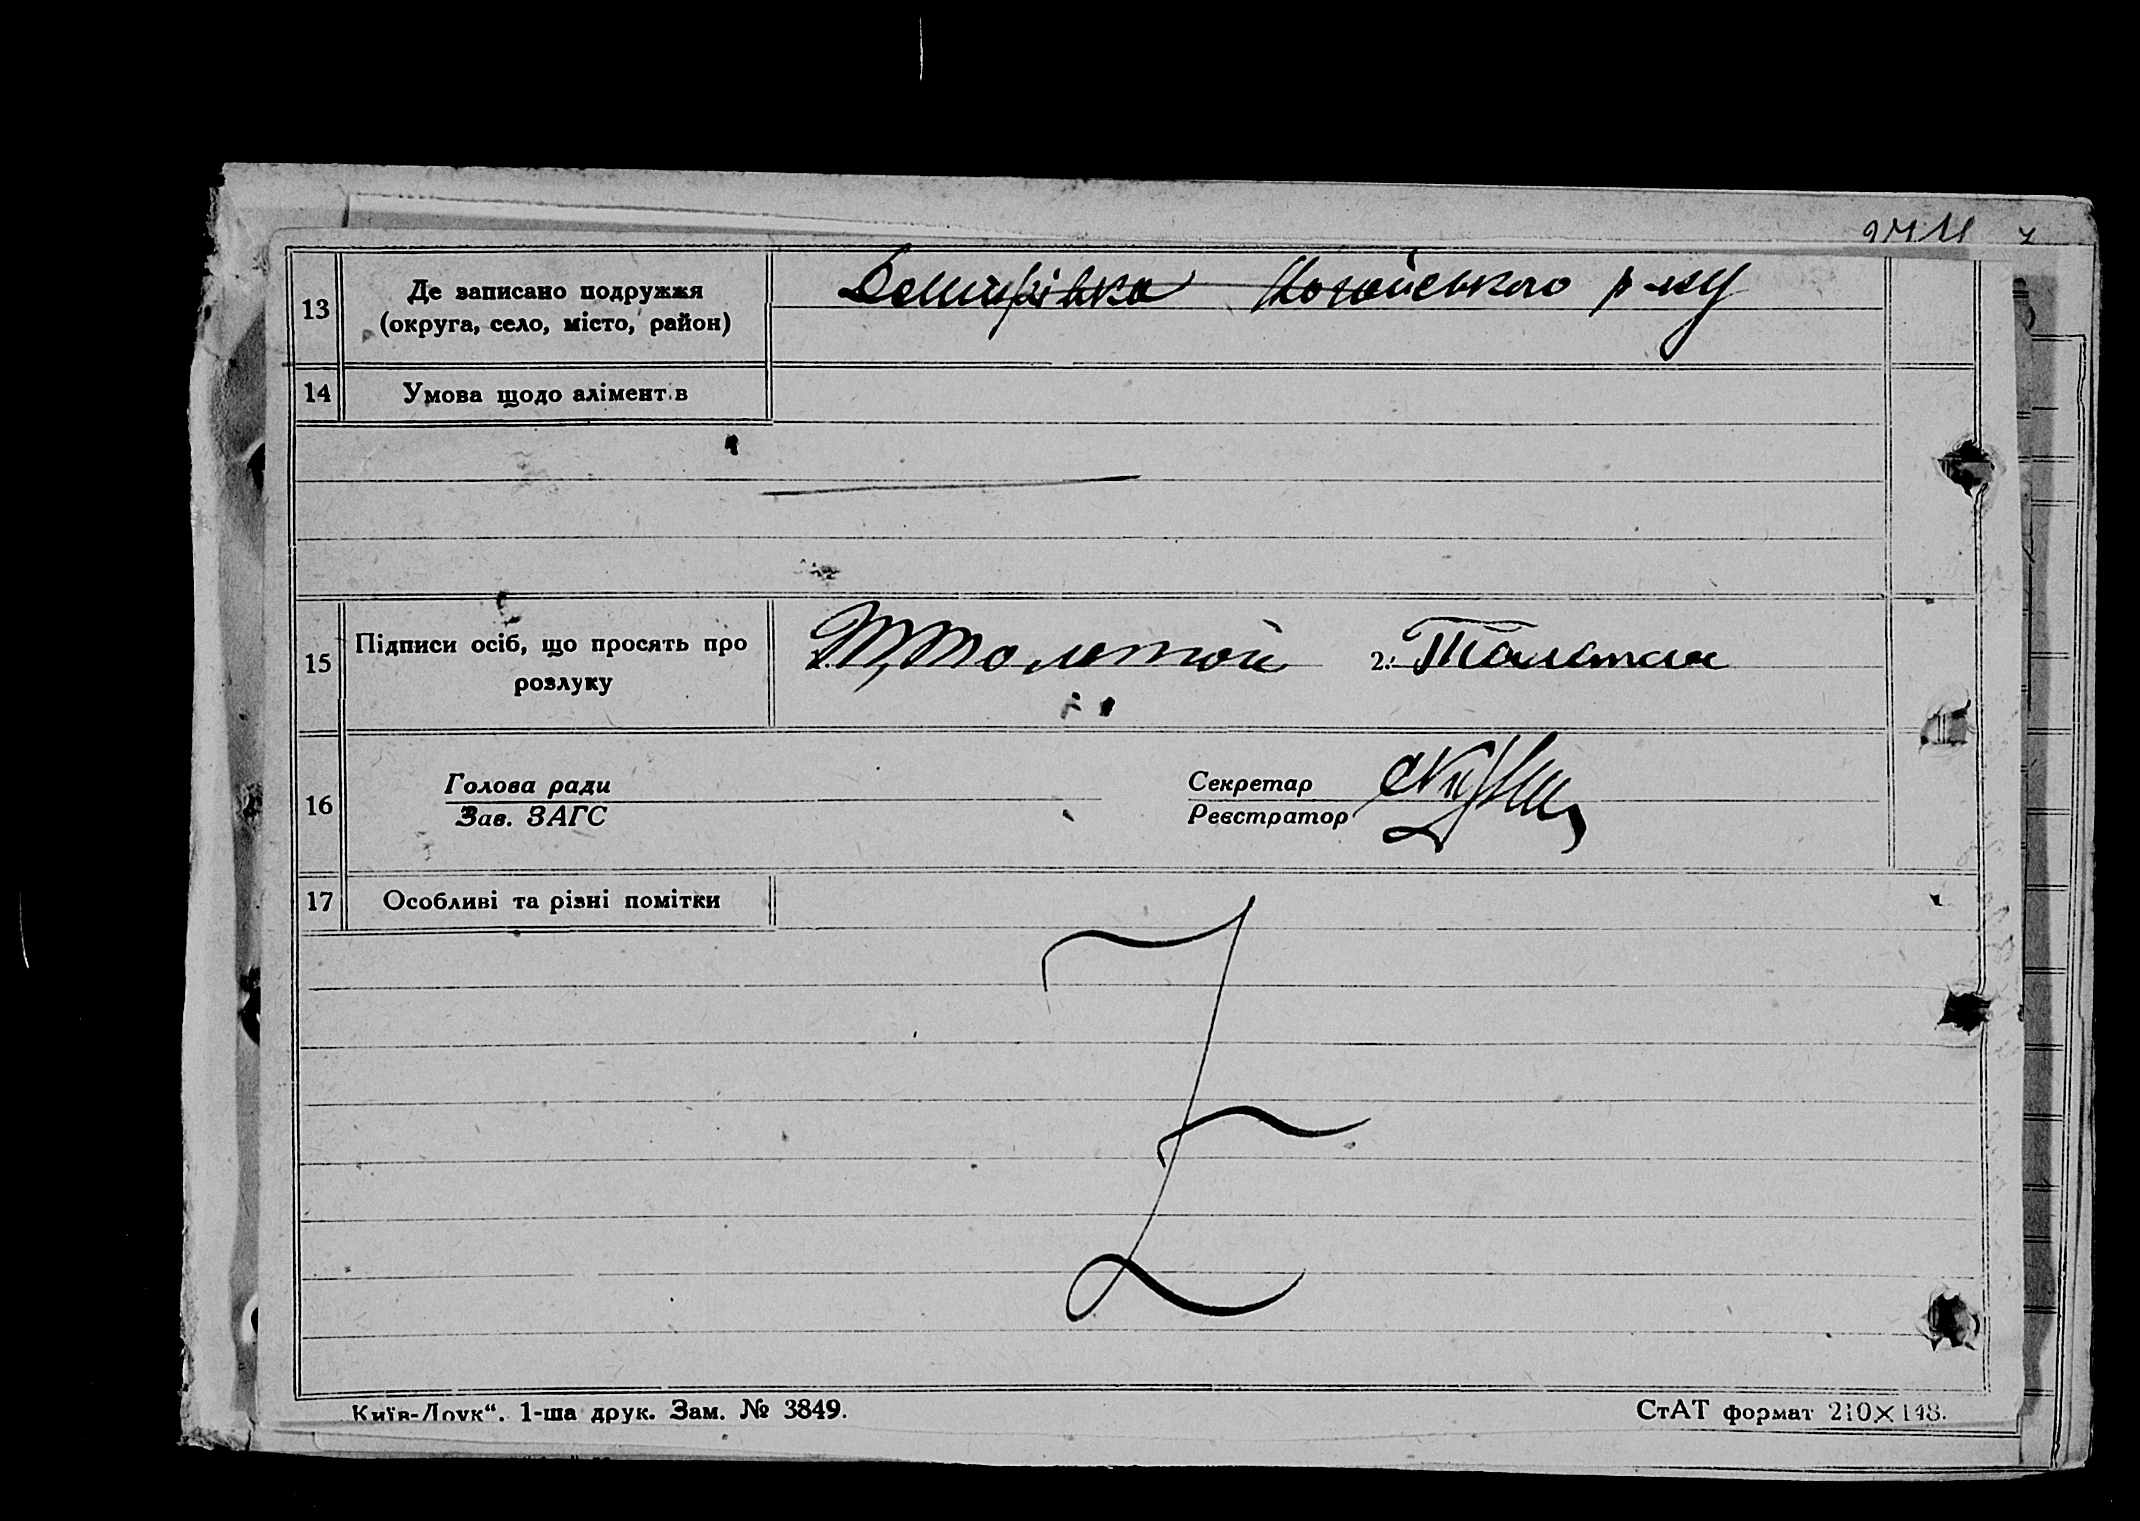 13
Де записано подружжя
(округа, село, місто, район)
Ногайського р-ну
14
Умова щодо алімент.в
15
Підписи осіб, що просять про
розлуку
Толстой
2.
16
Голова ради
Зав. ЗАГС
Секретар
Реєстратор
17
Особливі та різні помітки
Київ-Друк“. 1-ша друк. Зам. № 3849.
СтАТ формат 210×148.